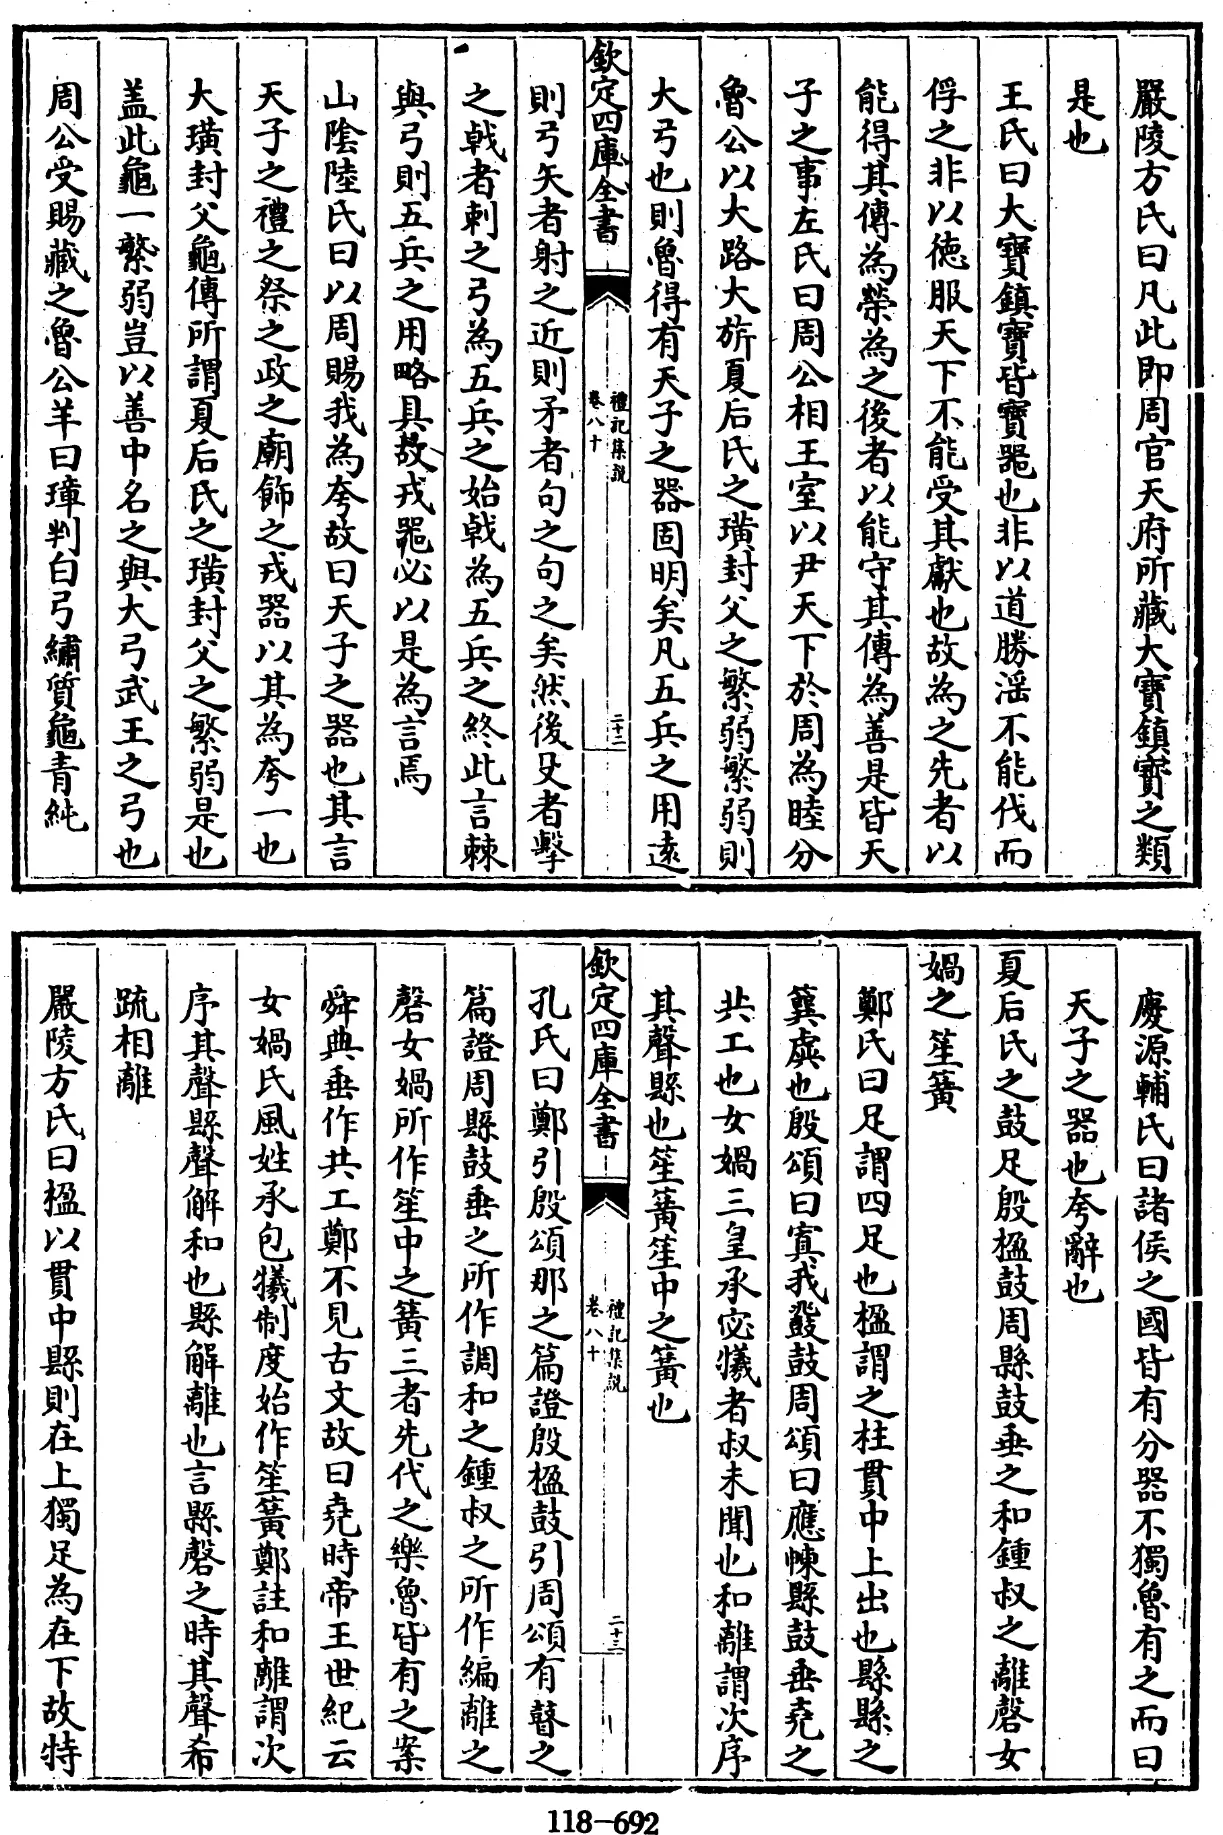 嚴陵方氏曰凡此即周官天府所藏大寶鎮寶之類
是也
王氏曰大寶鎮寶皆寶噐也非以道勝滛不能伐而
俘之非以德服天下不能受其獻也故為之先者以
能得其傳為榮為之後者以能守其傳為善是皆天
子之事左氏曰周公相王室以尹天下於周為睦分
魯公以大路大旂夏后氏之璜封父之繁弱繁弱則
大弓也則魯得有天子之器固明矣凡五兵之用遠
欽定四庫全書
禮記集說
卷八十
二十二
則弓矢者射之近則矛者句之句之矣然後殳者擊
之戟者刺之弓為五兵之始戟為五兵之終此言棘
與弓則五兵之用略具故戎噐必以是為言焉
山隂陸氏曰以周賜我為夸故曰天子之器也其言
天子之禮之祭之政之廟飾之戎器以其為夸一也
大璜封父龜傳所謂夏后氏之璜封父之繁弱是也
盖此龜一繁弱豈以善中名之與大弓武王之弓也
周公受賜藏之魯公羊曰璋判白弓繡質龜青純
慶源輔氏曰諸侯之國皆有分器不獨魯有之而曰
天子之器也夸辭也
夏后氏之鼓足殷楹鼓周縣鼓垂之和鍾叔之離磬女
媧之笙簧
鄭氏曰足謂四足也楹謂之柱貫中上出也縣縣之
簨虡也殷頌曰寘我鼗鼓周頌曰應朄縣鼓垂堯之
共工也女媧三皇承宓犧者叔未聞也和離謂次序
其聲縣也笙簧笙中之簧也
欽定四庫全書
禮記集說
卷八十
二十三
孔氏曰鄭引殷頌那之篇證殷楹鼓引周頌有瞽之
篇證周縣鼓垂之所作調和之鍾叔之所作編離之
磬女媧所作笙中之簧三者先代之樂魯皆有之案
舜典垂作共工鄭不見古文故曰堯時帝王世紀云
女媧氏風姓承包犧制度始作笙簧鄭註和離謂次
序其聲縣聲解和也縣解離也言縣磬之時其聲希
疏相離
嚴陵方氏曰楹以貫中縣則在上獨足為在下故特
118-692